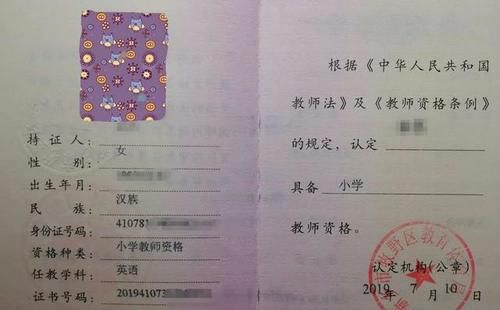 持证人：
性别：女
出生年月：
民族：汉族
身份证号码：41078
资格种类：小学教师资格
任教学科：英语
证书号码：201941073
根据《中华人民共和国
教师法》及《教师资格条例》
的规定，认定
具备 小学
教师资格。
牧野区教育体
认定机构(公章)
2019年7月10日